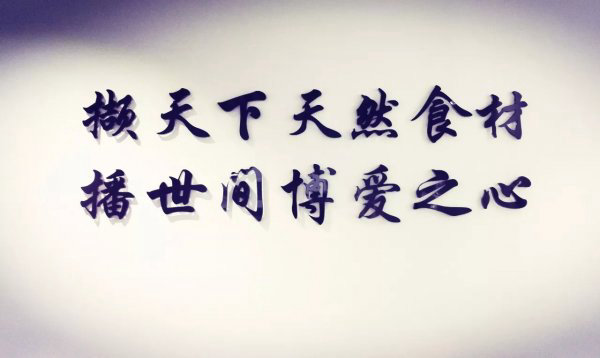 撷天下天然食材
播世间博爱之心